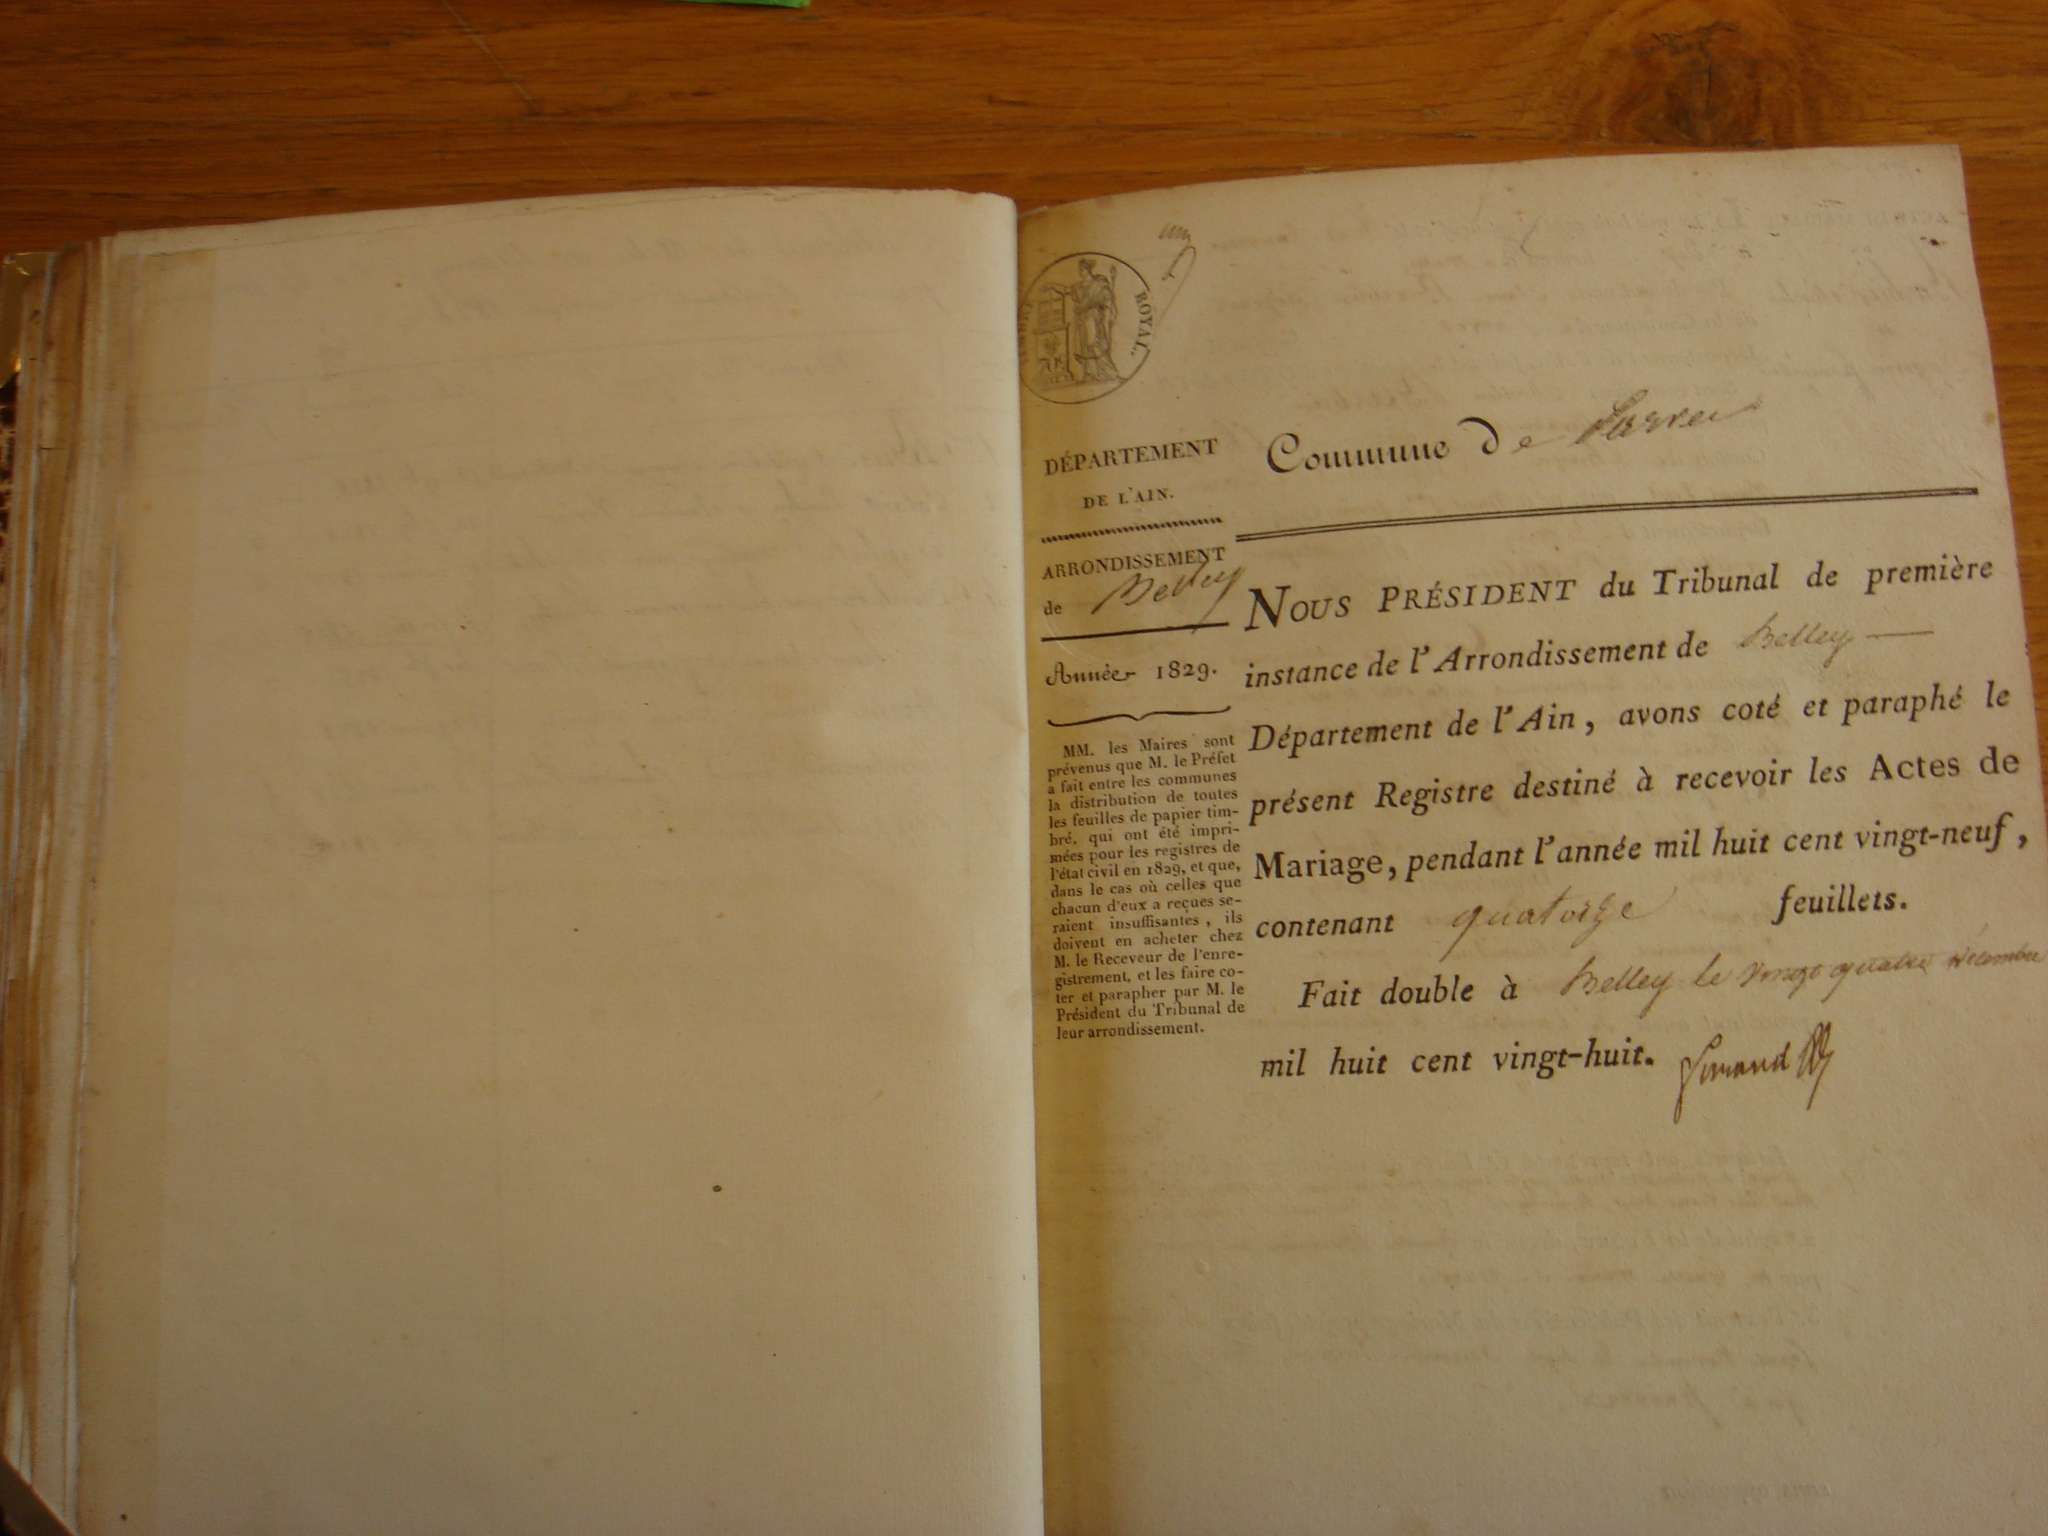 ROYAL.
DÉPARTEMENT
DE L'AIN.
ARRONDISSEMENT
de Belley
Année 1829.
MM. les Maires sont
prévenus que M. le Préfet
a fait entre les communes
la distribution de toutes
les feuilles de papier tim-
bré, qui ont été impri-
mées pour les registres de
l'état civil en 1829, et que,
dans le cas où celles que
chacun d'eux a reçues se-
raient insuffisantes, ils
doivent en acheter chez
M. le Receveur de l'enre-
gistrement, et les faire co-
ter et parapher par M. le
Président du Tribunal de
leur arrondissement.
Commune de
NOUS PRÉSIDENT du Tribunal de première
instance de l'Arrondissement de Belley
Département de l'Ain, avons coté et paraphé le
présent Registre destiné à recevoir les Actes de
Mariage, pendant l'année mil huit cent vingt-neuf,
contenant quatorze feuillets.
Fait double à Belley le vingt quatre décembre
mil huit cent vingt-huit.